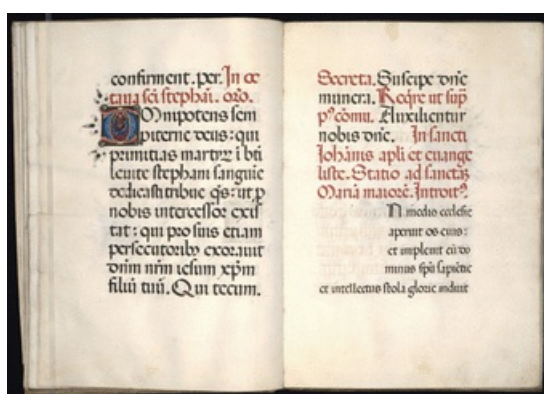 confirment. per. In oc
taua sci stephani. oro.
Omnipotens sem
piterne deus: qui
primitias martyrz i bti
leuite stephani sanguie
dedicasti tribue qs: ut p
nobis intercessor exis
tat: qui pro suis etiam
persecutoriby exorauit
dnm nrm iesum xpm
filiu tuu. Qui tecum.
Secreta. Suscipe dne
munera. Reqre ut sup
pꝯcomu. Auxilientur
nobis dne. In sancti
Iohanis apli et euange
liste. Statio ad sanctaz
Maria maiore. Introitꝯ.
In medio ecclesie
aperuit os eius:
et impleuit eu do
minus spu sapietie
et intellectus stola glorie induit